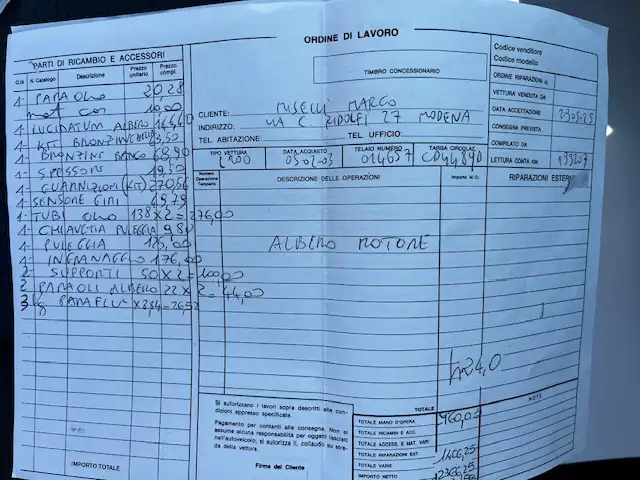 ORDINE DI LAVORO
PARTI DI RICAMBIO E ACCESSORI
Q.tà N. Catalogo Descrizione Prezzo unitario Prezzo compl.
1- PARAOLIO 20.28
1- mat con 10.00
1- LUCIDATURA ALBERO
1- KIT BRONZINE BIELLA 63,50
1- BRONZINE BANCO 68,90
1- SPESSORI 19,50
1- GUARNIZIONI (KIT) 270,56
1- SENSORE GIRI 49,79
1- TUBI OLIO 138 X 2 = 276,00
1- CHIAVETTA PULEGGIA 9,80
1- PULEGGIA 125,00
1- INGRANAGGIO 176,00
2- SUPPORTI 50 X 2 = 100,00
2 PARAOLI ALBERO 22 X 2. 44,00
3 kg PARAFLU X 8,84 = 26,52
IMPORTO TOTALE
TIMBRO CONCESSIONARIO
CLIENTE: MISELLI MARCO
INDIRIZZO: VIA C. RIDOLFI 27 MODENA
TEL. ABITAZIONE: TEL. UFFICIO:
Codice venditore
Codice modello
ORDINE RIPARAZIONI N.
VETTURA VENDUTA DA
DATA ACCETTAZIONE 29.05.25
CONSEGNA PREVISTA
COMPILATO DA
LETTURA CONTA KM. 139207
TIPO VETTURA DATA ACQUISTO TELAIO NUMERO TARGA CIRCOLAZ.
03.07.03 014657 CD44840
Numero Operazione Tempario DESCRIZIONE DELLE OPERAZIONI Importo M.O. RIPARAZIONI ESTERNE
ALBERO MOTORE
h 24,0
Si autorizzano i lavori sopra descritti alle condizioni appresso specificate.
Pagamento per contanti alla consegna. Non si
assume alcuna responsabilità per oggetti lasciati
nell'autoveicolo; si autorizza il collaudo su strada della vettura.
Firma del Cliente
TOTALE
NOTE
TOTALE MANO D'OPERA 960,00
TOTALE RICAMBI E ACC.
TOTALE ACCESS. E MAT. VARI
TOTALE RIPARAZIONI EST. 1406,25
TOTALE VARIE
IMPORTO NETTO 2366,25